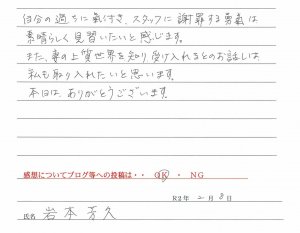 自分の過ちに気付き、スタッフに謝罪する勇気は
素晴らしく見習いたいと感じます。
また、妻の上質世界を知り、受け入れるとのお話しは
私も取り入れたいと思います。
本日は、ありがとうございます。
感想についてブログ等への投稿は・・ OK ・ NG
R2年 2月 8日
氏名 岩本芳久